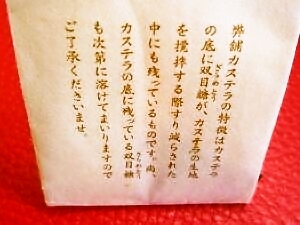 弊舗カステラの特徴はカステラ
の底に双目糖が、カステラの生地
を撹拌する際すり減らされた
中にも残っているものです。尚、
カステラの底に残っている双目糖
も次第に溶けてまいりますので
ご了承くださいませ。